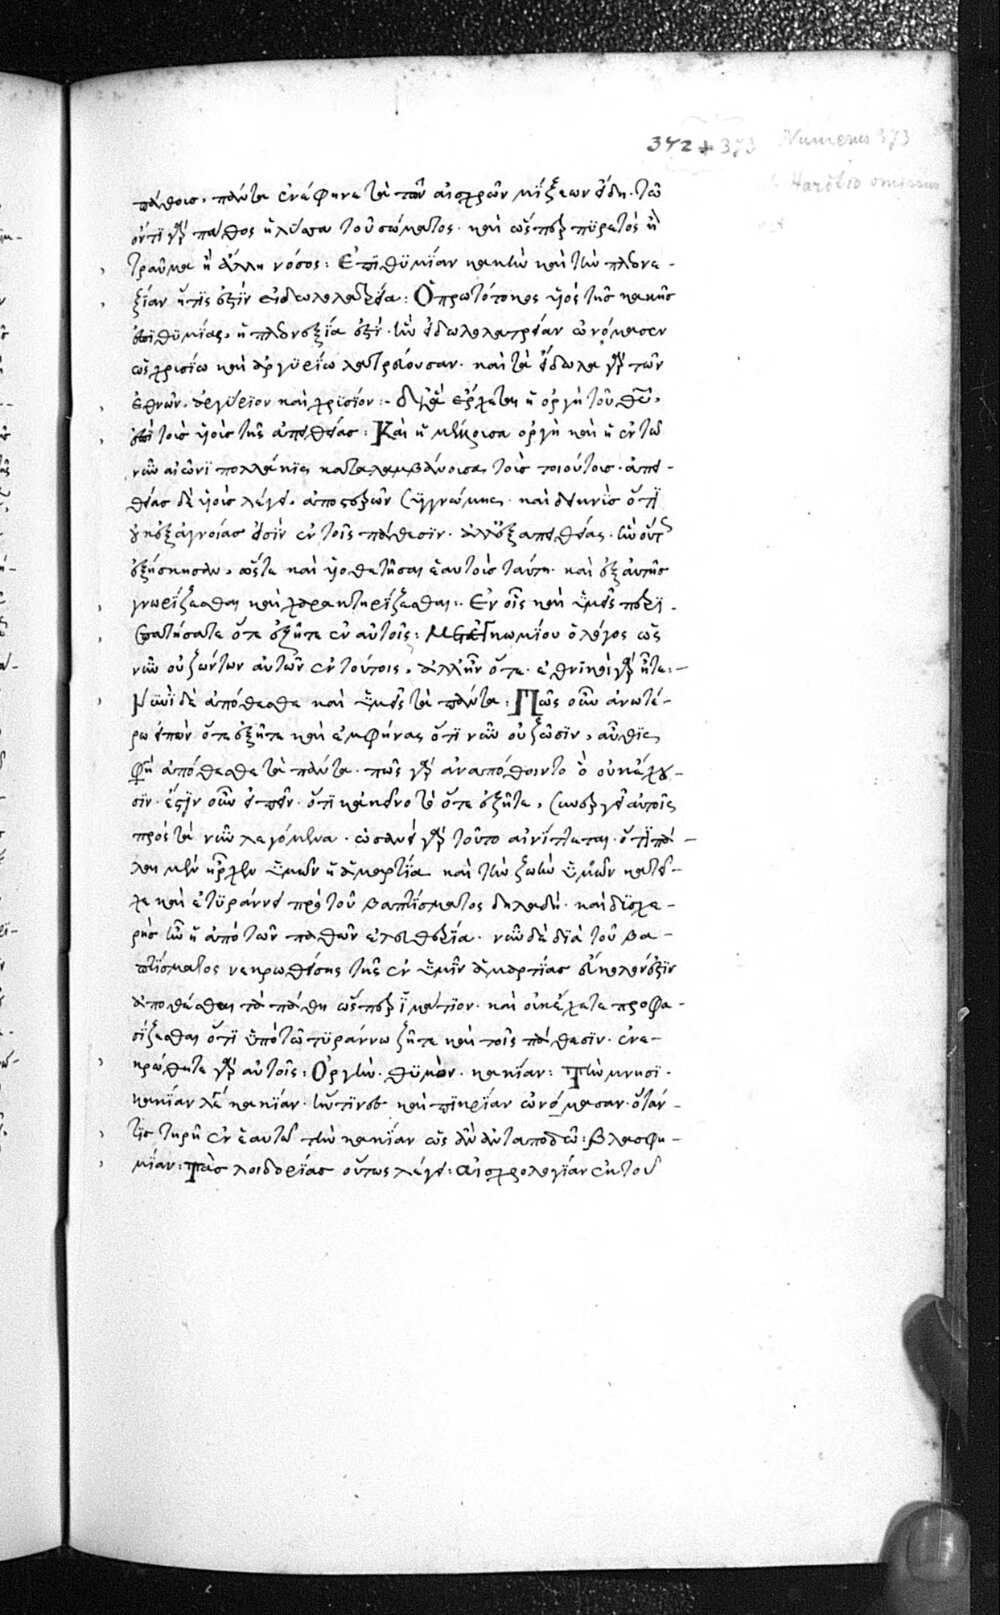 342 + 373 Numerus 373
Hardtio omissus
πάθοις, πάντα ἐνέφηνε τὰ τῶν αἰσχρῶν μίξεων εἴδη. τῶ
ὄντι γὰρ πάθος ἡ λύπα τοῦ σώματος. καὶ ὥσπερ πϋρετὸς ἢ
τραῦμα ἢ ἄλλη νόσος: Ἐπϊθϋμίαν κακὴν καὶ τὴν πλεονε-
ξίαν ἥτις ἐστὶν εἰδωλολατρεία: Ὁ πρωτότοκος ϋἱὸς τῆς κακῆς
ἐπϊθϋμίας, ἡ πλεονεξία ἐστί. ἣν εἰδωλολατρείαν ὠνόμασεν
ὡς χρυσίω καὶ ἀργϋρίω λατρεύουσαν. καὶ τὰ εἴδωλα γὰρ τῶν
ἐθνῶν, ἀργύριον καὶ χρυσίον:- δι' ἃ ἔρχεται ἡ ὀργὴ τοῦ θεοῦ,
ἐπὶ τοὺς ϋἱοὺς τῆς ἀπειθείας: Καὶ ἡ μέλλουσα ὀργὴ καὶ ἡ ἐν τῶ
νῦν αἰῶνι πολλάκις καταλαμβάνουσα τοὺς τοιούτους. ἀπει-
θείας δὲ ϋἱοὺς λέγει, ἀποστερῶν συγγνώμης. καὶ δεικνὺς ὅτϊ
οὐκ ἐξ ἀγνοίας εἰσὶν ἐν τοῖς πάθεσιν. ἀλλ' ἐξ ἀπειθείας. ἣν οὕτως
ἐξήσκησαν, ὥστε καὶ ϋἱοθετῆσαι ἑαυτοὺς ταύτη. καὶ ἐξ αὐτῆς
γνωρίζεσθαι καὶ χαρακτηρίζεσθαι:. Ἐν οἷς καὶ ϋμεῖς περϊ-
επατήσατε ὅτε ἐζῆτε ἐν αὐτοῖς: Μετ' ἐγκωμίου ὁ λόγος ὡς
νῦν οὐ ζώντων αὐτῶν ἐν τούτοις, ἀλλ' ἦν ὅτε. ἐθνικοὶ γὰρ ἦτε:-
Νυνῒ δὲ ἀπόθεσθε καὶ ϋμεῖς τὰ πάντα: Πῶς οὖν ἀνωτέ-
ρω εἰπὼν ὅτε ἐζῆτε καὶ ἐμφήνας ὅτι νῦν οὐ ζῶσιν, αὖθις
φησὶ ἀπόθεσθε τὰ πάντα. πῶς γὰρ ἂν ἀπόθοιντο ὃ οὐκ ἔχου-
σιν. ἔστϊν οὖν εἰπεῖν. ὅτϊ κἀκεῖνο τὸ ὅτε ἐζῆτε, συνεργεῖ αὐτοῖς
πρὸς τὰ νῦν λεγόμενα. ὡσανεὶ γὰρ τοῦτο αἰνίττεται. ὅτϊ πά-
λαι μὲν ἦρχεν ϋμῶν ἡ ἁμαρτία καὶ τὴν ζωὴν ϋμῶν κατεῖ-
χε καὶ ἐτϋράννει πρὸ τοῦ βαπτίσματος δηλαδή. καὶ δϋσχε-
ρὴς ἦν ἡ ἀπὸ τῶν παθῶν ἐλευθερία. νῦν δὲ δϊὰ τοῦ βα-
πτίσματος νεκρωθείσης τῆς ἐν ϋμῖν ἁμαρτίας εὔκολον ἐστϊν
ἀποθέσθαι τὰ πάθη ὥσπερ ϊμάτϊον. καὶ οὐκ ἔχετε προφα-
σίζεσθαι ὅτι ϋπὸ τῶ τϋράννω ζῆτε καὶ τοῖς πάθεσϊν. ἐνε-
κρώθητε γὰρ αὐτοῖς: Ὀργήν. θϋμόν. κακίαν: Τὴν μνησϊ-
κακίαν λέγει κακϊαν. ἥν τϊνες καὶ πϊκρίαν ὠνόμασαν. ὅταν
τϊς τηρῆ ἐν ἑαυτῶ τὴν κακίαν ὡς ἂν ἀνταποδῶ: βλασφη-
μίαν: Τὰς λοιδορίας οὕτως λέγει: αἰσχρολογίαν ἐκ τοῦ